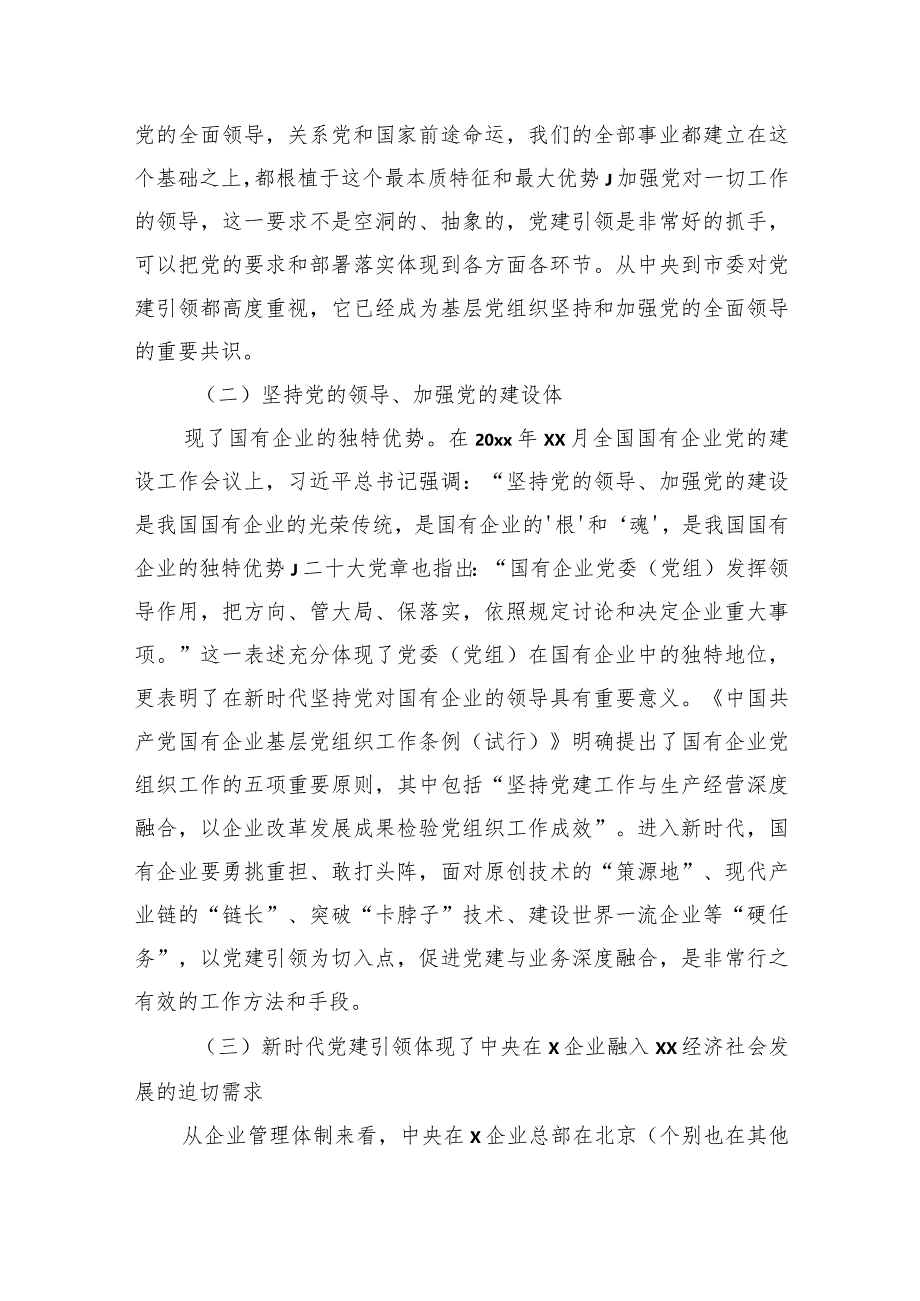 党的全面领导，关系党和国家前途命运，我们的全部事业都建立在这
个基础之上，都根植于这个最本质特征和最大优势J加强党对一切工作
的领导，这一要求不是空洞的、抽象的，党建引领是非常好的抓手，
可以把党的要求和部署落实体现到各方面各环节。从中央到市委对党
建引领都高度重视，它已经成为基层党组织坚持和加强党的全面领导
的重要共识。
（二）坚持党的领导、加强党的建设体
现了国有企业的独特优势。在20xx年XX月全国国有企业党的建
设工作会议上，习近平总书记强调：“坚持党的领导、加强党的建设
是我国国有企业的光荣传统，是国有企业的'根'和‘魂'，是我国国有
企业的独特优势J二十大党章也指出：“国有企业党委（党组）发挥领
导作用，把方向、管大局、保落实，依照规定讨论和决定企业重大事
项。”这一表述充分体现了党委（党组）在国有企业中的独特地位，
更表明了在新时代坚持党对国有企业的领导具有重要意义。《中国共
产党国有企业基层党组织工作条例（试行）》明确提出了国有企业党
组织工作的五项重要原则，其中包括“坚持党建工作与生产经营深度
融合，以企业改革发展成果检验党组织工作成效”。进入新时代，国
有企业要勇挑重担、敢打头阵，面对原创技术的“策源地”、现代产
业链的“链长”、突破“卡脖子”技术、建设世界一流企业等“硬任
务”，以党建引领为切入点，促进党建与业务深度融合，是非常行之
有效的工作方法和手段。
（三）新时代党建引领体现了中央在X企业融入XX经济社会发
展的迫切需求
从企业管理体制来看，中央在X企业总部在北京（个别也在其他